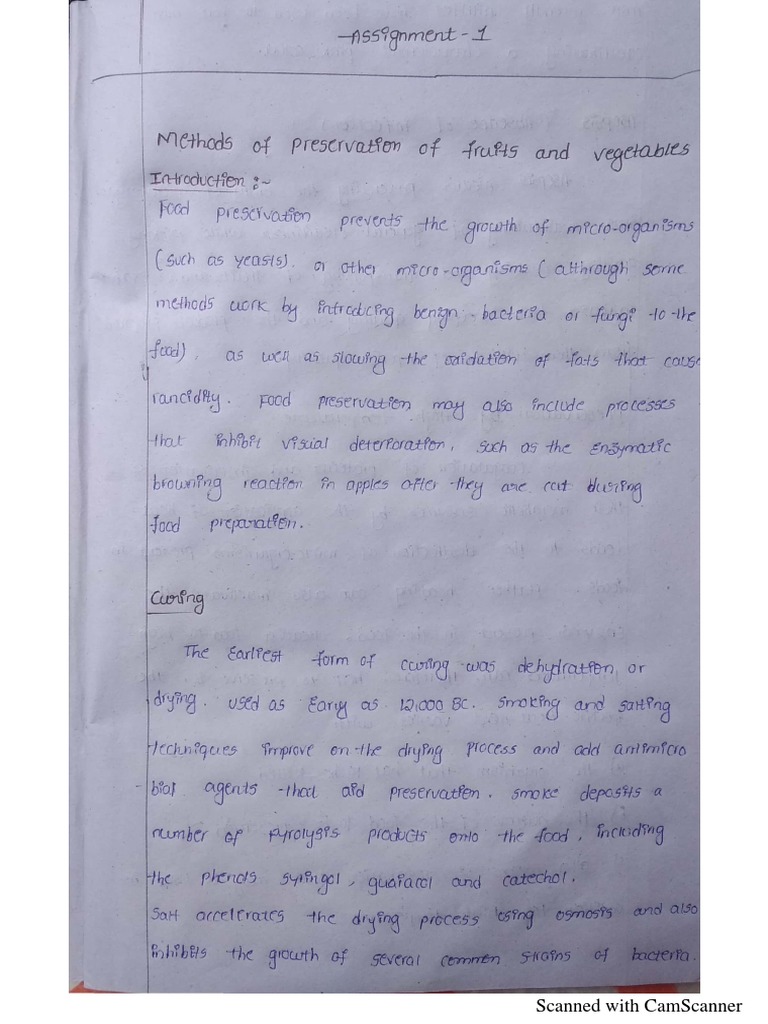 Assignment-1
Methods of preservation of fruits and vegetables
Introduction :~
Food preservation prevents the growth of micro-organisms
(such as yeasts). or other micro-organisms (althrough some
methods work by introducing benign bacteria or fungi to the
food), as well as slowing the oxidation of fats that cause
rancidity. Food preservation may also include processes
that inhibit visual deterioration, such as the enzymatic
browning reaction in apples after they are cut during
food preparation.
Curing
The Earliest form of curing was dehydration or
drying. used as Early as 12,000 BC. smoking and salting
techniques improve on the drying process and add antimicro
bial agents that aid preservation. smoke deposits a
number of pyrolysis products onto the food, including
the phenols syringol, guaiacol and catechol.
Salt accelerates the drying process using osmosis and also
inhibits the growth of several common strains of bacteria.
Scanned with CamScanner